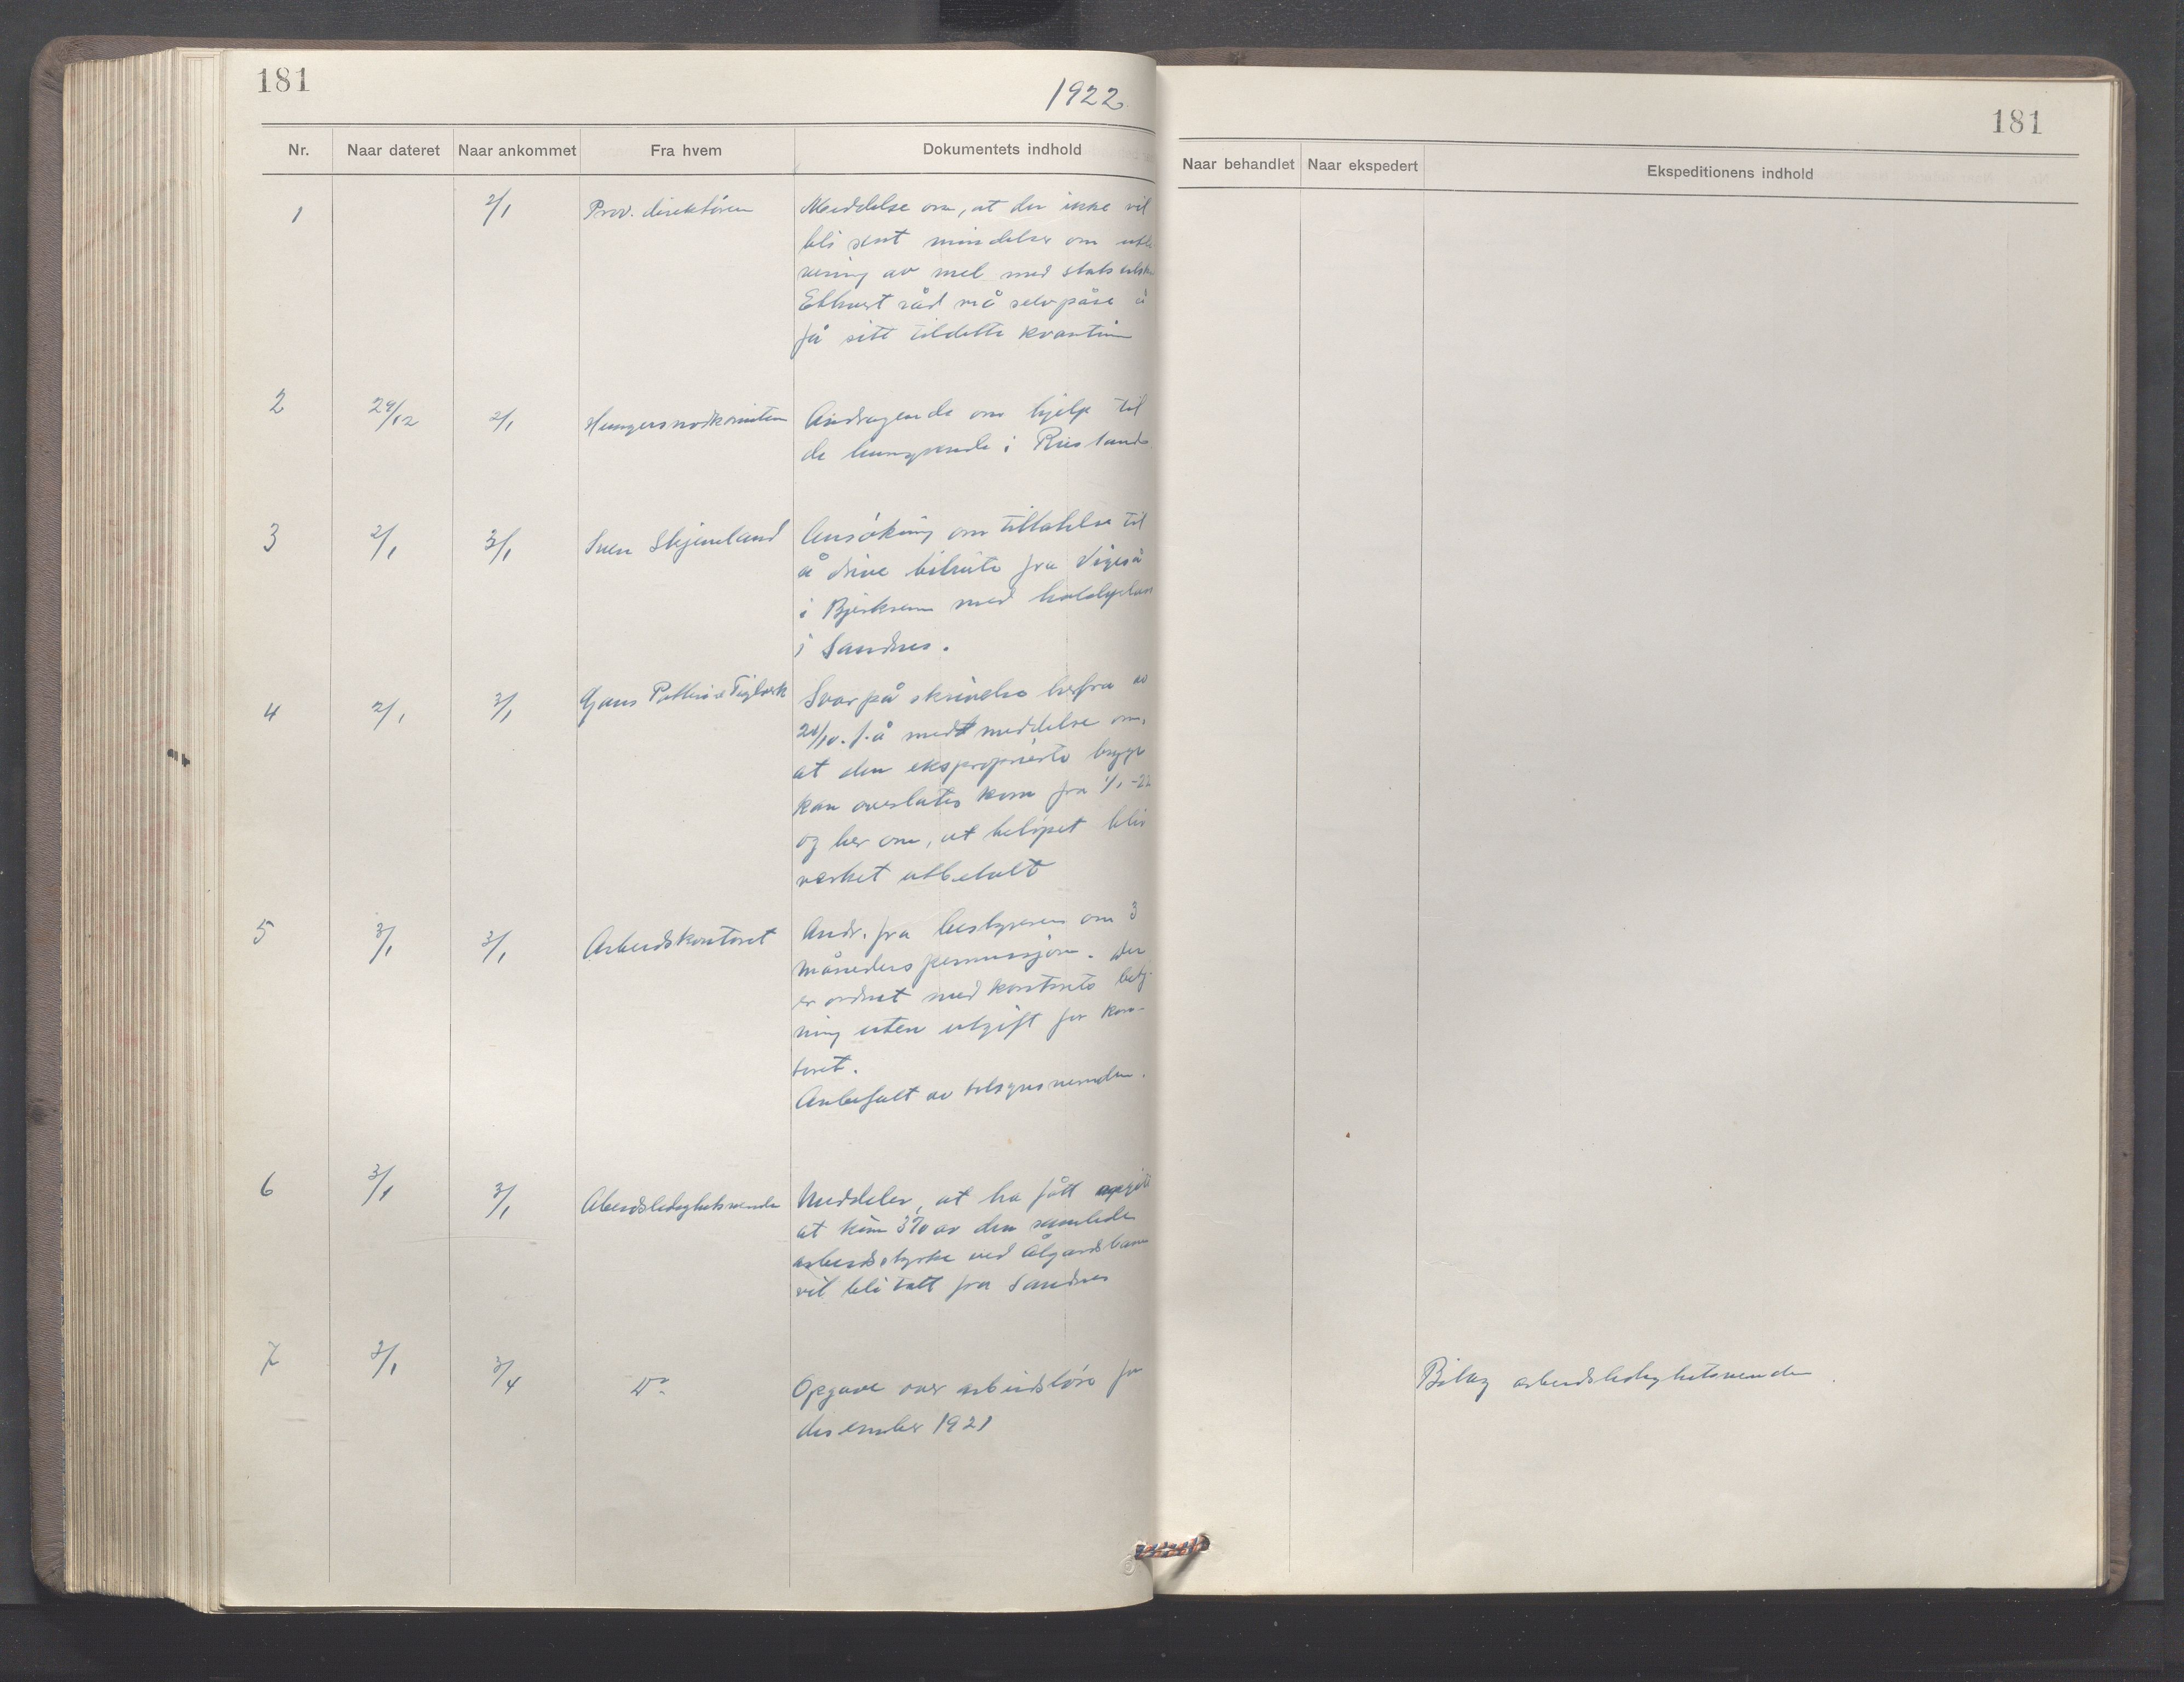 181
1922.
Nr. Naar dateret Naar ankommet Fra hvem Dokumentets indhold
1 2/1 Prov. direktören Meddelse om, at der ikke vil
bli sent mindelser om
av mel med
Ethvert råd må selv påse å
få sitt tildelte kvantum
2 29/12 2/1 Hungersnødkomiteen Andragende om hjelp til
de hungrende i Rusland.
3 2/1 3/1 Sven Skjeneland Ansökning om tillatelse til
å drive bilrute fra Vigeså
i Bjerkrem med holdeplass
i Sandnes.
4 2/1 3/1 Gans Potteri & Teglverk Svar på skrivelse herfra av
f.å med meddelse om,
at den eksproprierte brygge
kan overlates kom fra 1/1-22
og ber om, at belöpet blir
verket utbetalt
5 3/1 3/1 Arbeidskontoret Andr. fra bestyreren om 3
måneders permissjon. Der
er ordnet med kontorets betj-
ning uten utgift for kon-
toret.
Anbefalt av tilsynsnemnden.
6 3/1 3/1 Abeidsledighetsnemnda Meddeler, at ha fått
at kun 3% av den samlede
arbeidsstyrke ved Ålgårdsbanen
vil bli tatt fra Sandnes
7 3/1 3/4 Do. Opgave over arbeidslöse for
desember 1921
181
Naar behandlet Naar ekspedert Ekspeditionens indhold
Bilag arbeidsledighetsnemnden.